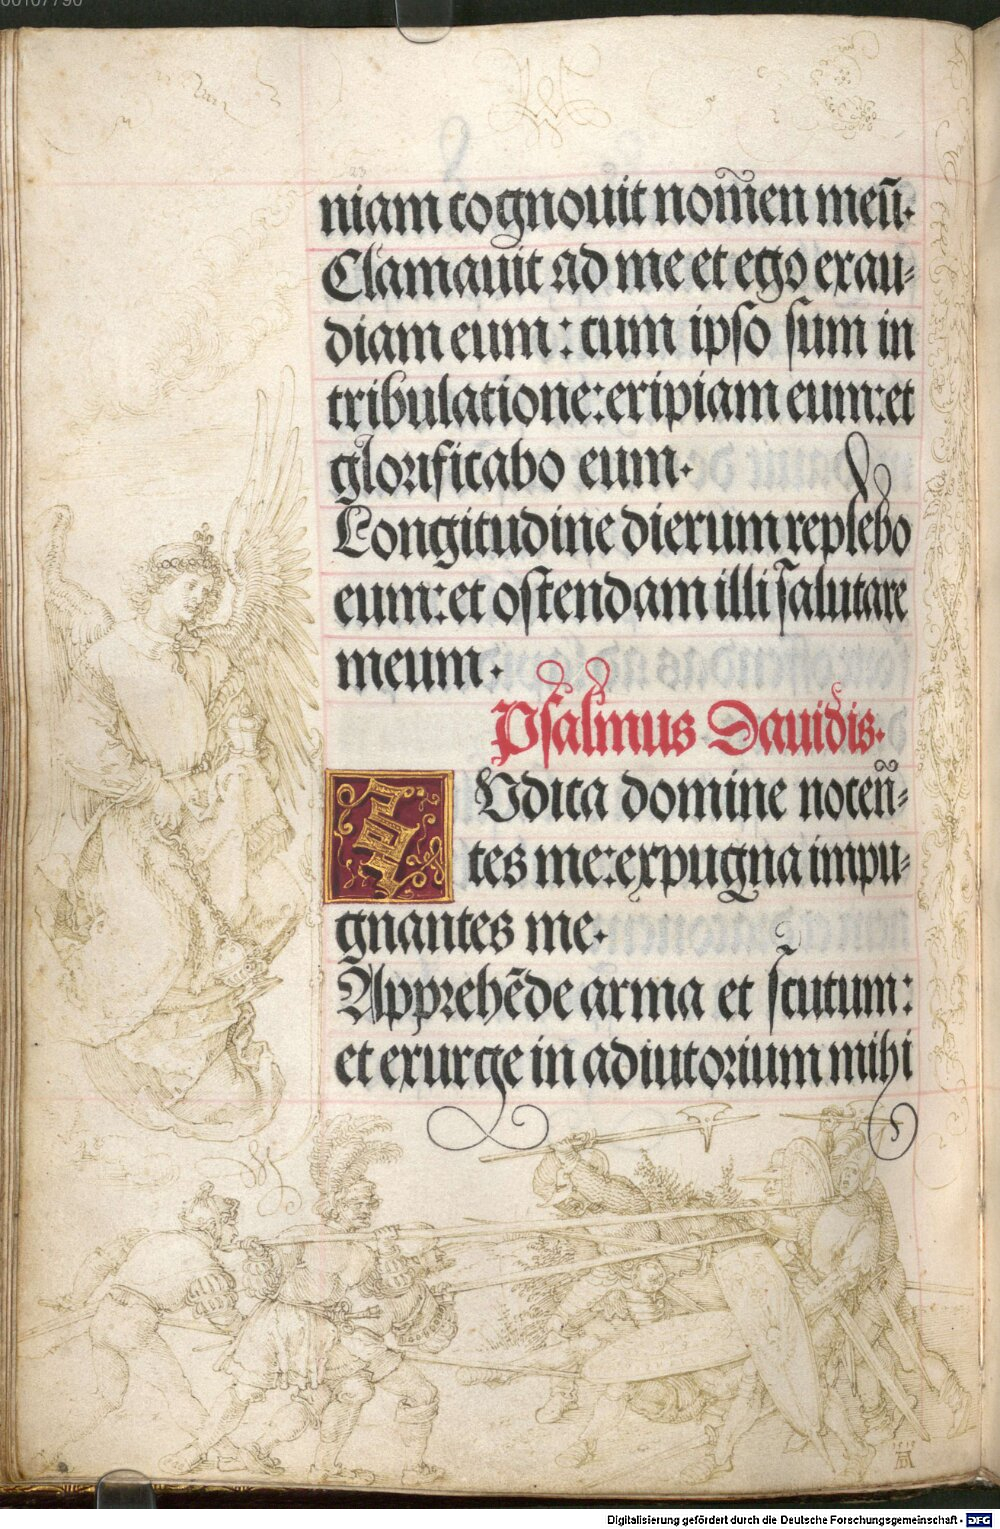 00107790
23
niam cognouit nom̄en meū.
Clamauit ad me et ego exau=
diam eum: cum ipso sum in
tribulatione: eripiam eum: et
glorificabo eum.
Longitudine dierum replebo
eum: et ostendam illi salutare
meum.
Psalmus Dauidis.
IVdica domine nocen̄=
tes me: expugna impu=
gnantes me.
Apprehēde arma et scutum:
et exurge in adiutorium mihi
AD
Digitalisierung gefördert durch die Deutsche Forschungsgemeinschaft - DFG